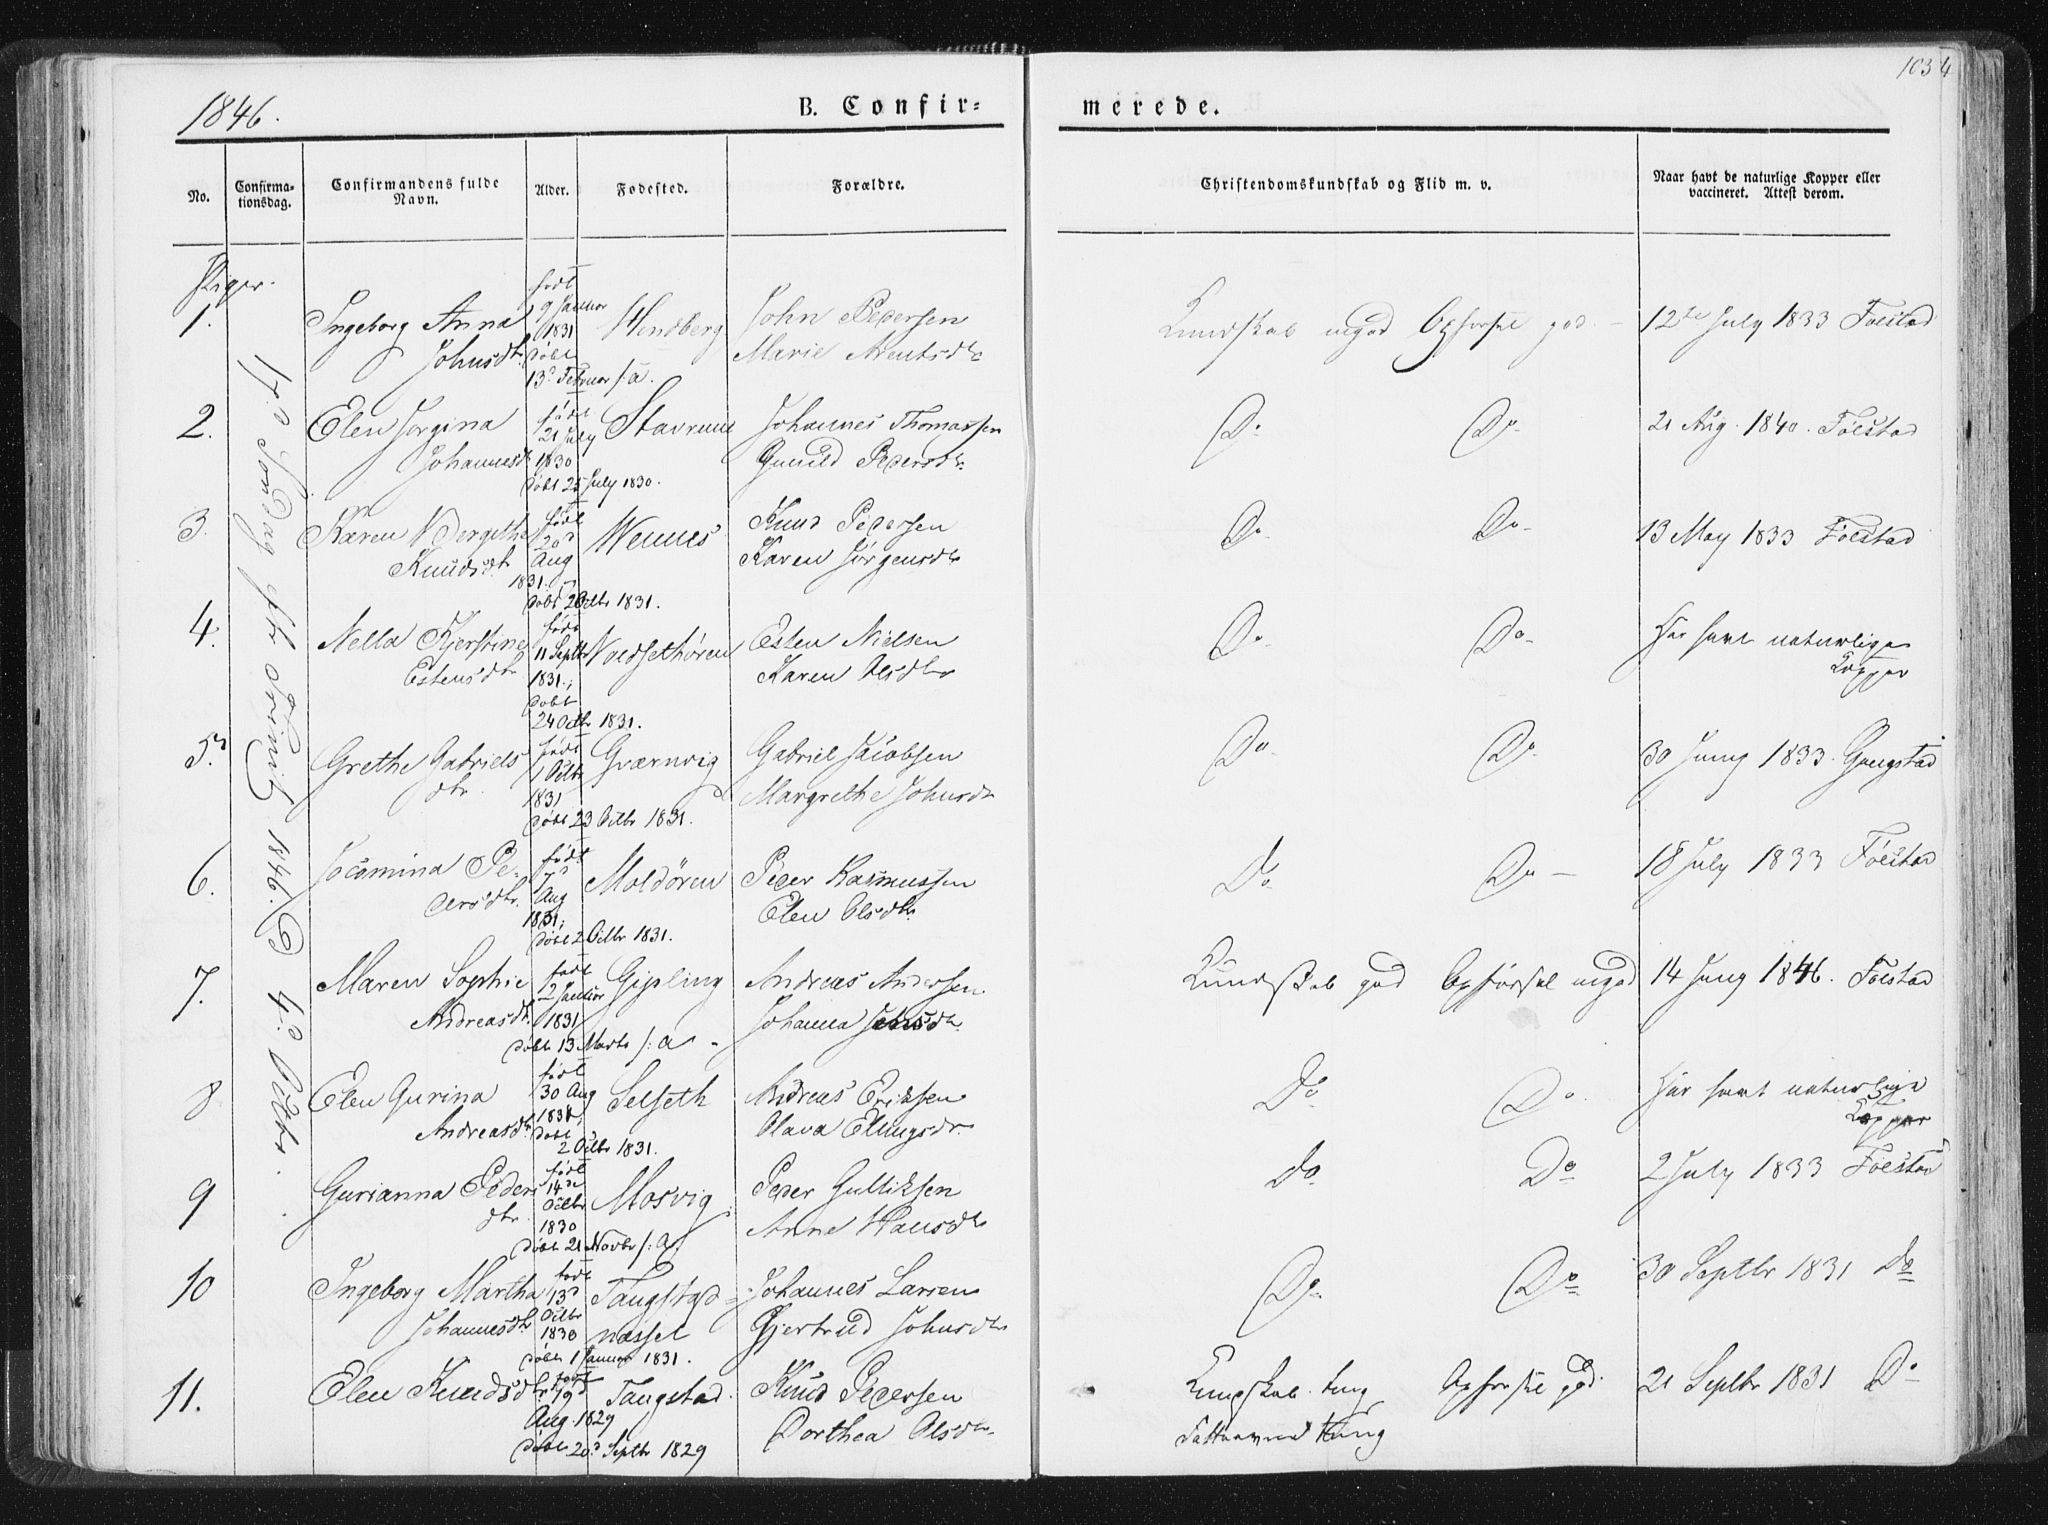 1034
1846.
B. Confir-
merede.
No.
Confirma-
tionsdag.
Confirmandens fulde
Navn.
Alder.
Fodested.
Forældre.
Christendomskundskab og Flid m. v.
Naar havt de naturlige Kopper eller
vaccineret. Attest derom.
Piger.
1. Ingeborg Anna Johnsdtr født 9 Januar 1831 døbt 13d Februar s: a. Hindberg John Pedersen Marie Arentsdtr Kundskab mgod Opførsel god 12te July 1833 Føestad
2. Elen Jorgina Johannesdtr født 21 July 1830 døbt 25 July 1830. Stavrum Johannes Thomassen Gunild Pedersdtr Do Do 21 Aug. 1840. Føestad
3. Karen Bergitha Knudsdtr født 20d Aug 1831. døbt 2 Octbr 1831. Wennes Knud Pedersen Karen Jørgensdtr Do Do 13 May 1833 Føestad
4. Nella Kjerstine Estensdtr født 11 Septbr 1831.; døbt 24 Octbr 1831. Voldsethøren Esten Nielsen Karen Olsdtr Do Do Har havt naturlige Kopper
5. Grethe Gabrielsdtr. født 1 Octbr 1831 døbt 23 Octbr 1831. Gværnvig Gabriel Jacobsen Margrethe Johnsdtr Do Do 30 Juny 1833. Gangstad
6. Jocomina Pedersdtr. født 7d Aug 1831; døbt 2 Octbr 1831. Moldören Peder Rasmussen Elen Olsdtr Do Do 18 July 1833 Føestad
7. Maren Sophie Andreasdtr. født 2 Januar 1831 døbt 13 Marts s: a Gipling Andreas Andersen Johanna Jensdtr Kundskab god Opførsel mgod 14 Juny 1846. Føestad
8 Elen Gurina Andreasdtr født 30 Aug 1831, døbt 2 Octbr 1831. Selseth Andreas Eriksen Olava Elingsdr. Do Do Har havt naturlige Kopper
9 Gurianna Pedersdtr. født 14de Octbr 1830 døbt 21 Novbr s: a. Mosvig Peder Gulliksen Anne Hansdtr do Do 2 July 1833 Føestad
10 Ingeborg Martha Johannesdtr født 13d Octbr 1830 døbt 1 Januar 1831. Taugstadnæsset Johannes Larsen Gjertrud Johnsdtr Do Do 30 Septbr 1831 Do
11. Elen Knudsdtr født 19d Aug. 1829 døbt 20d Septbr 1829 Taugstad. Knud Pedersen Dorthea Olsdtr Kundskab tung Fatteevne tung Opførsel god. 21 Septbr 1831 Do
17d Søndag efter Trinit. 1846. 4d Octbr.